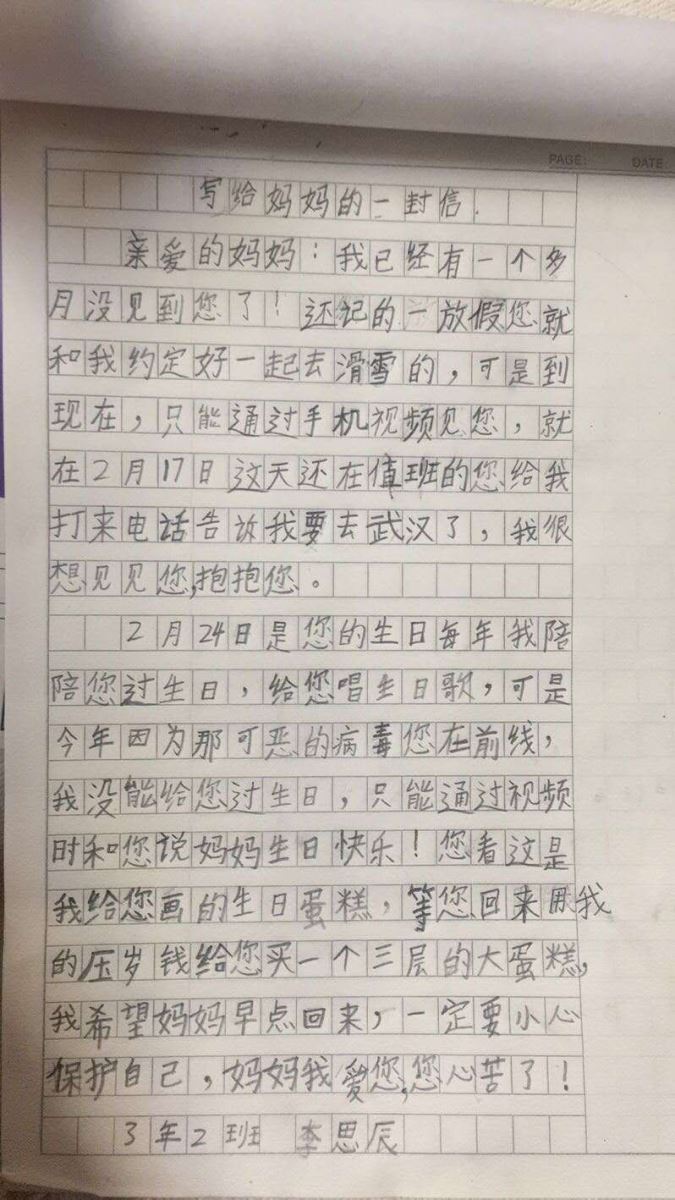 PAGE: DATE
写给妈妈的一封信.
亲爱的妈妈:我已经有一个多
月没见到您了!还记的一放假您就
和我约定好一起去滑雪的,可是到
现在,只能通过手机视频见您,就
在2月17日这天还在值班的您给我
打来电话告诉我要去武汉了,我很
想见见您,抱抱您。
2月24日是您的生日每年我陪
陪您过生日,给您唱生日歌,可是
今年因为那可恶的病毒您在前线,
我没能给您过生日,只能通过视频
时和您说妈妈生日快乐!您看这是
我给您画的生日蛋糕,等您回来用我
的压岁钱给您买一个三层的大蛋糕,
我希望妈妈早点回来,一定要小心
保护自己,妈妈我爱您,您心苦了!
3年2班 李思辰